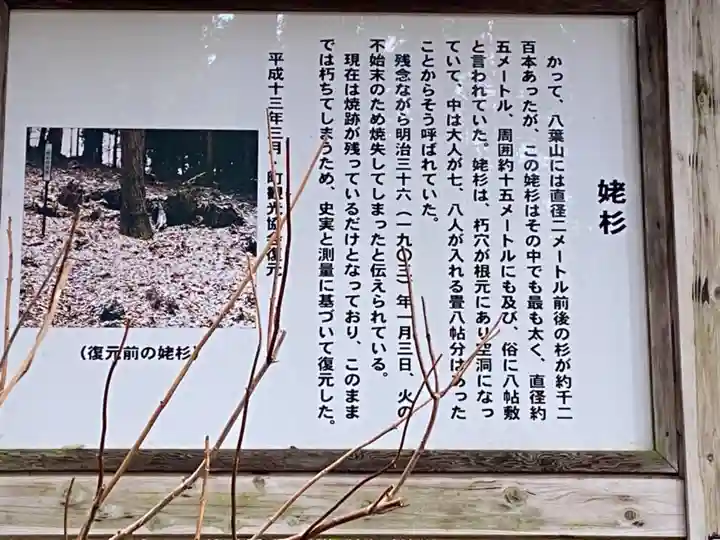 姥杉
かって、八葉山には直径二メートル前後の杉が約千二
百本あったが、この姥杉はその中でも最も太く、直径約
五メートル、周囲約十五メートルにも及び、俗に八帖敷
と言われていた。姥杉は、朽穴が根元にあり空洞になっ
ていて、中は大人が七、八人が入れる畳八帖分はあった
ことからそう呼ばれていた。
残念ながら明治三十六（一九〇三）年一月三日、火の
不始末のため焼失してしまったと伝えられている。
現在は焼跡が残っているだけとなっており、このまま
では朽ちてしまうため、史実と測量に基づいて復元した。
平成十三年三月 町観光協会復元
（復元前の姥杉）